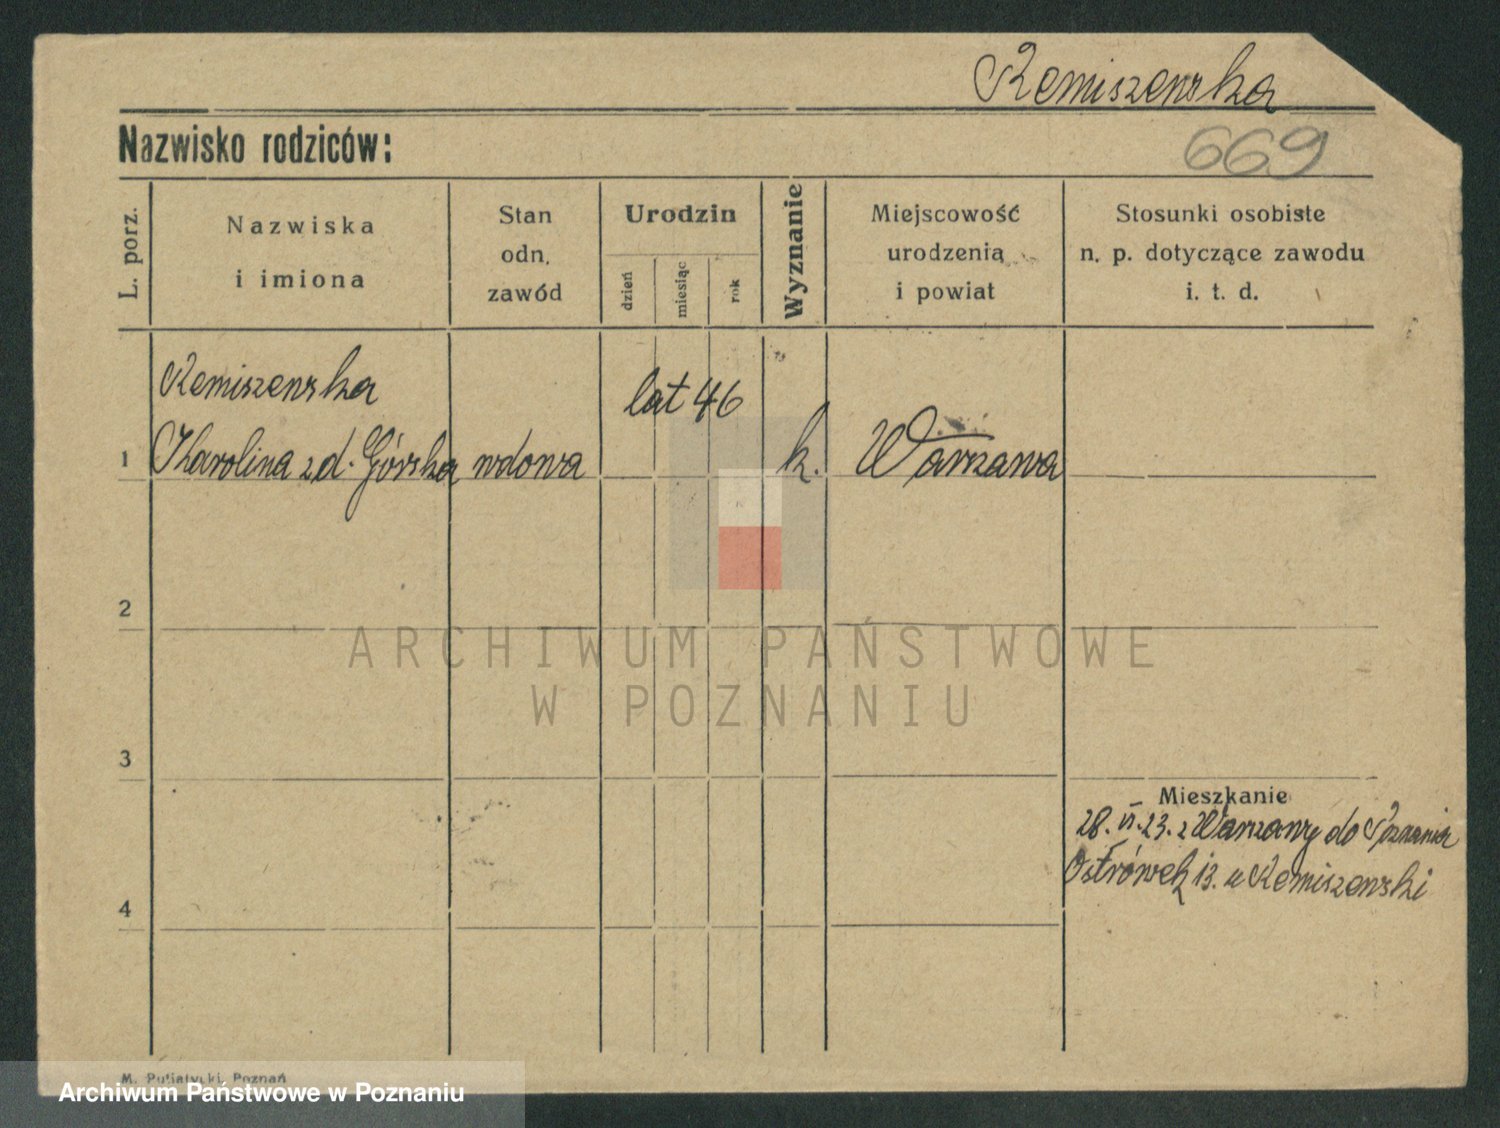 Remiszewska
Nazwisko rodziców:
669
L. porz.
Nazwiska
i imiona
Stan
odn.
zawód
Urodzin
dzień
miesiąc
rok
Wyznanie
Miejscowość
urodzenia
i powiat
Stosunki osobiste
n. p. dotyczące zawodu
i. t. d.
Remiszewska
lat 46
1 Karolina z d. Górska wdowa k. Warszawa
2
ARCHIWUM PAŃSTWOWE
W POZNANIU
3
Mieszkanie
28. VI. 23. z Warszawy do Poznania
Ostrówek 13. u Remiszewski
4
M. Putiatycki, Poznań
Archiwum Państwowe w Poznaniu